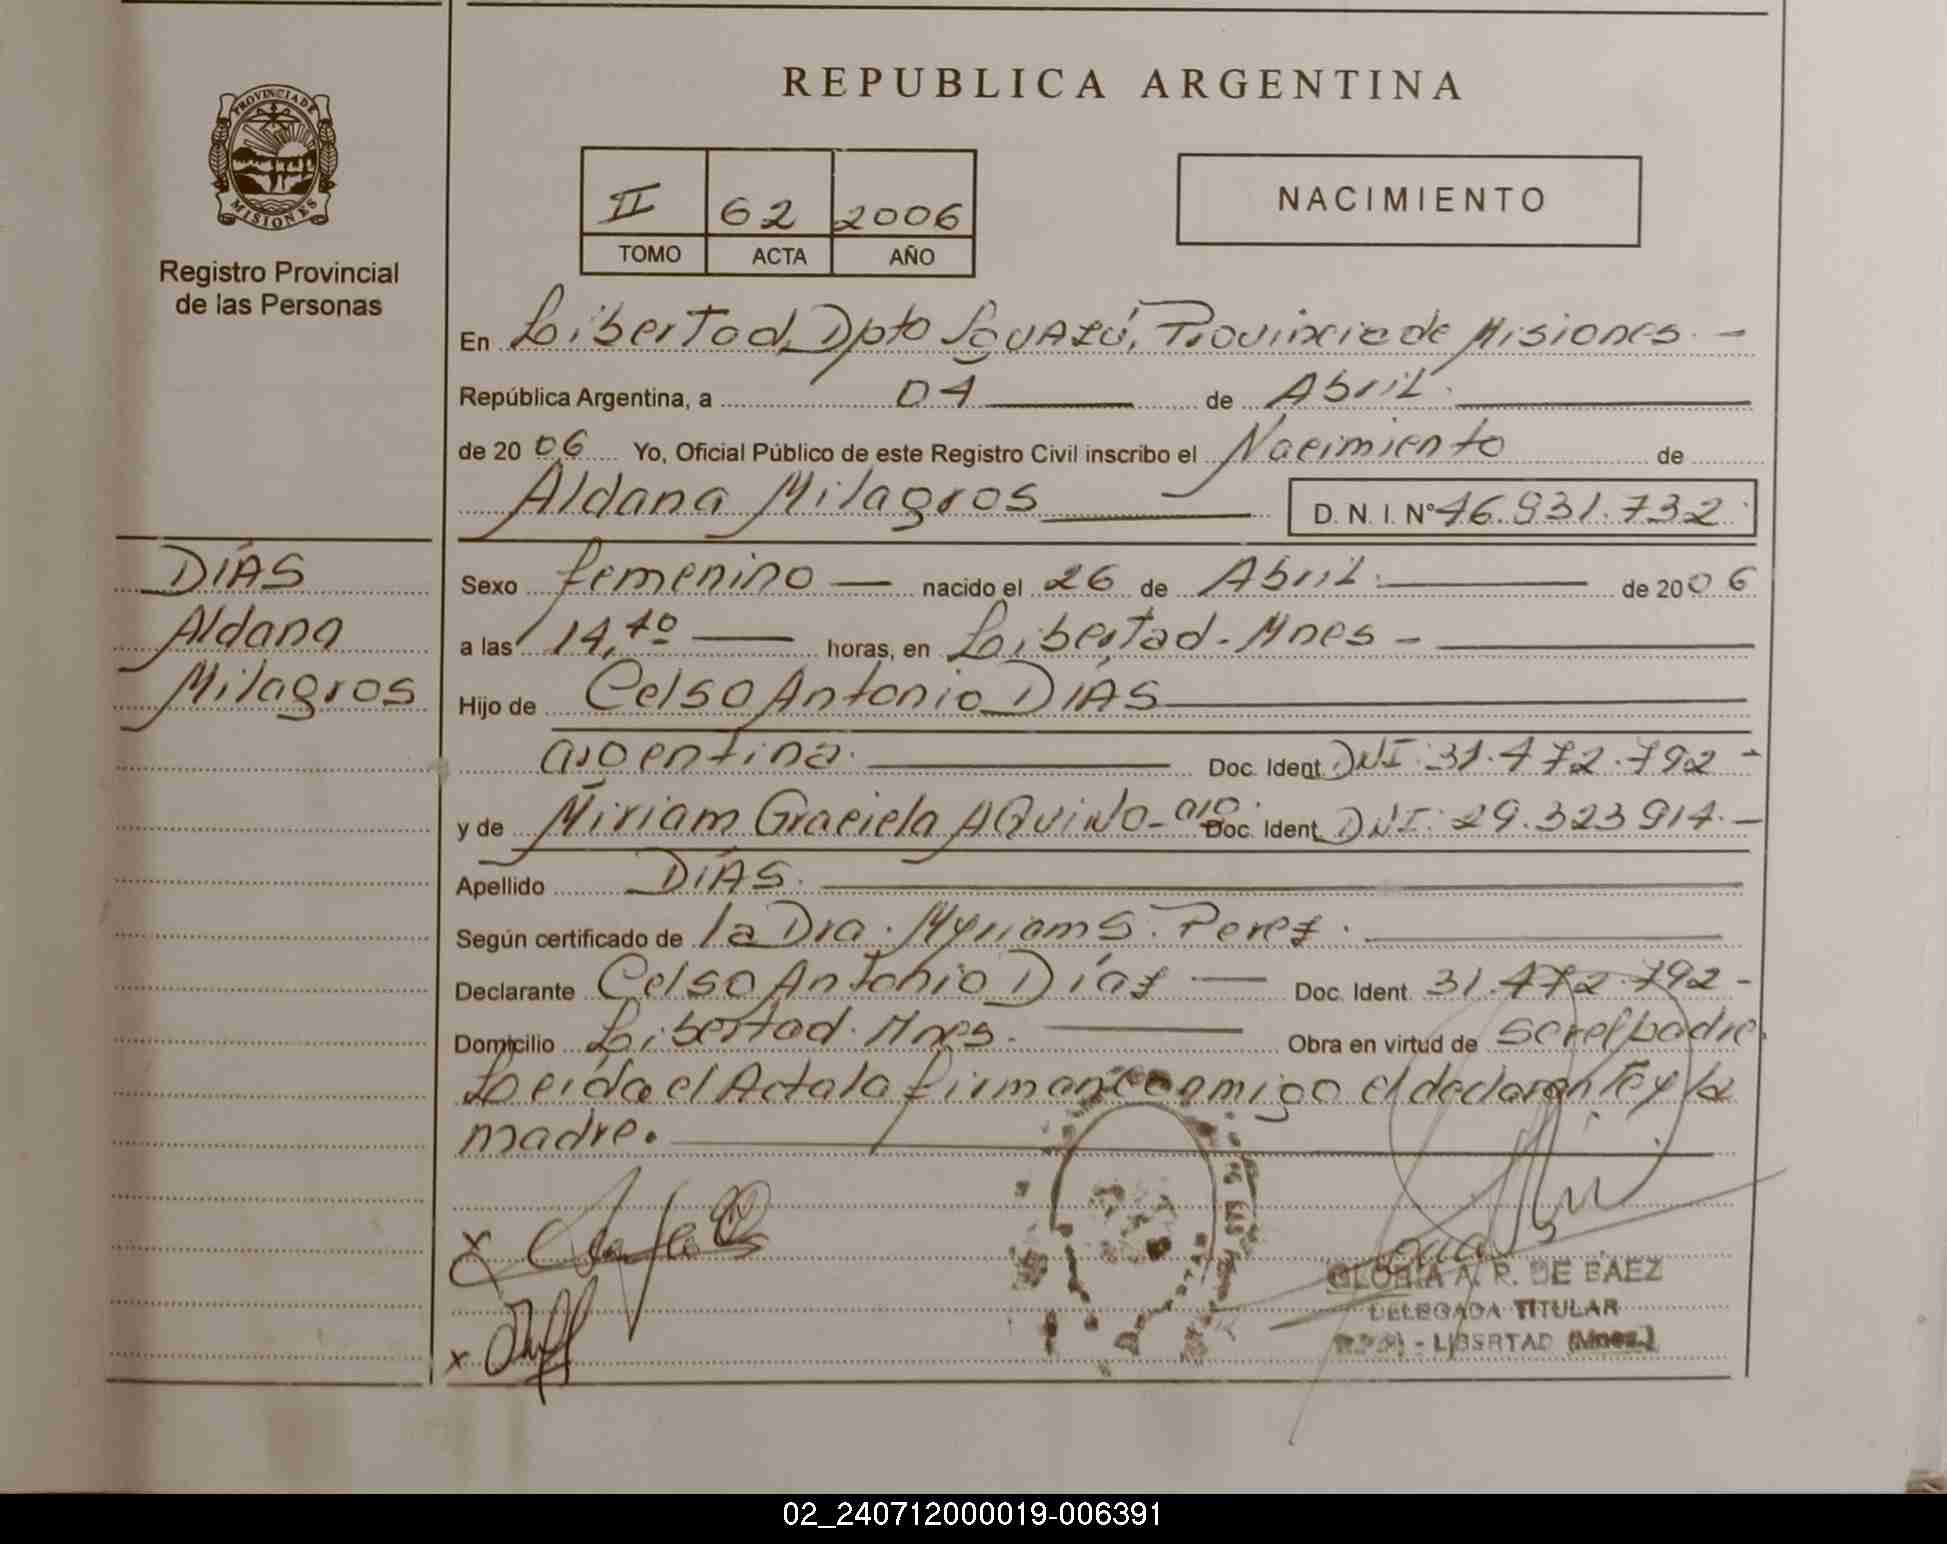 REPUBLICA ARGENTINA
PROVINCIA DE MISIONES
Registro Provincial
de las Personas
II 62 2006
TOMO ACTA AÑO
NACIMIENTO
En Libertad, Dpto Iguazú, Provincia de Misiones. -
República Argentina, a 04 de Abril.
de 2006 Yo, Oficial Público de este Registro Civil inscribo el Nacimiento de
Aldana Milagros D. N. I. N° 46.931.732.
DÍAS
Aldana
Milagros
Sexo femenino nacido el 26 de Abril. de 2006
a las 14,40 horas, en Libertad - Mnes -
Hijo de Celso Antonio DÍAS
argentina. Doc. Ident. DNI: 31.472.792 -
y de Miriam Graciela AQUINO - arg. Doc. Ident. DNI: 29.323914. -
Apellido DÍAS.
Según certificado de la Dra. Myriam S. Perez.
Declarante Celso Antonio Díaz Doc. Ident. 31.472.792 -
Domicilio Libertad. Mnes. Obra en virtud de ser el padre.
Leída el Acta la firman conmigo el declarante y la
madre.
x
x
GLORIA A. R. DE BAEZ
DELEGADA TITULAR
- LIBERTAD (Mnes.)
02_240712000019-006391